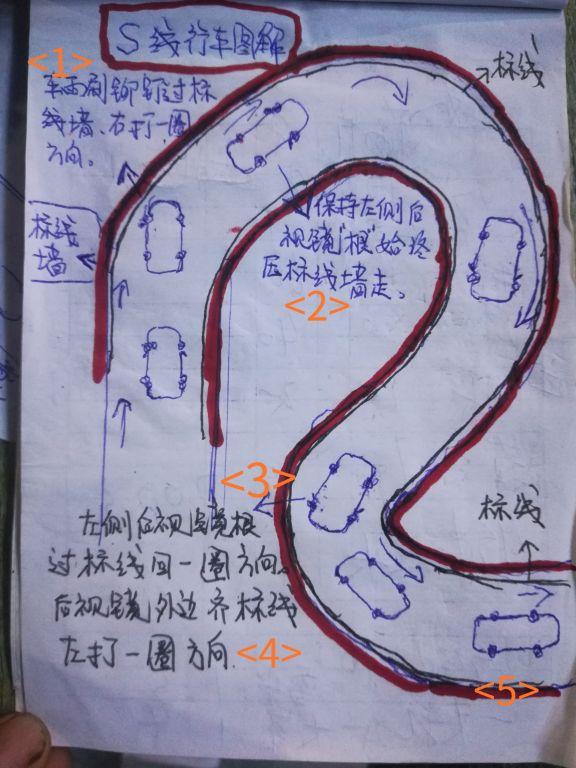 S线行车图解
<1>
车两刷铆钉过标
线墙、右打一圈
方向。
标线
标线
墙
保持左侧后
视镜"根"始终
压标线墙走。
<2>
<3>
左侧后视镜根
过标线回一圈方向。
后视镜外边齐标线
左打一圈方向.<4>
标线
<5>